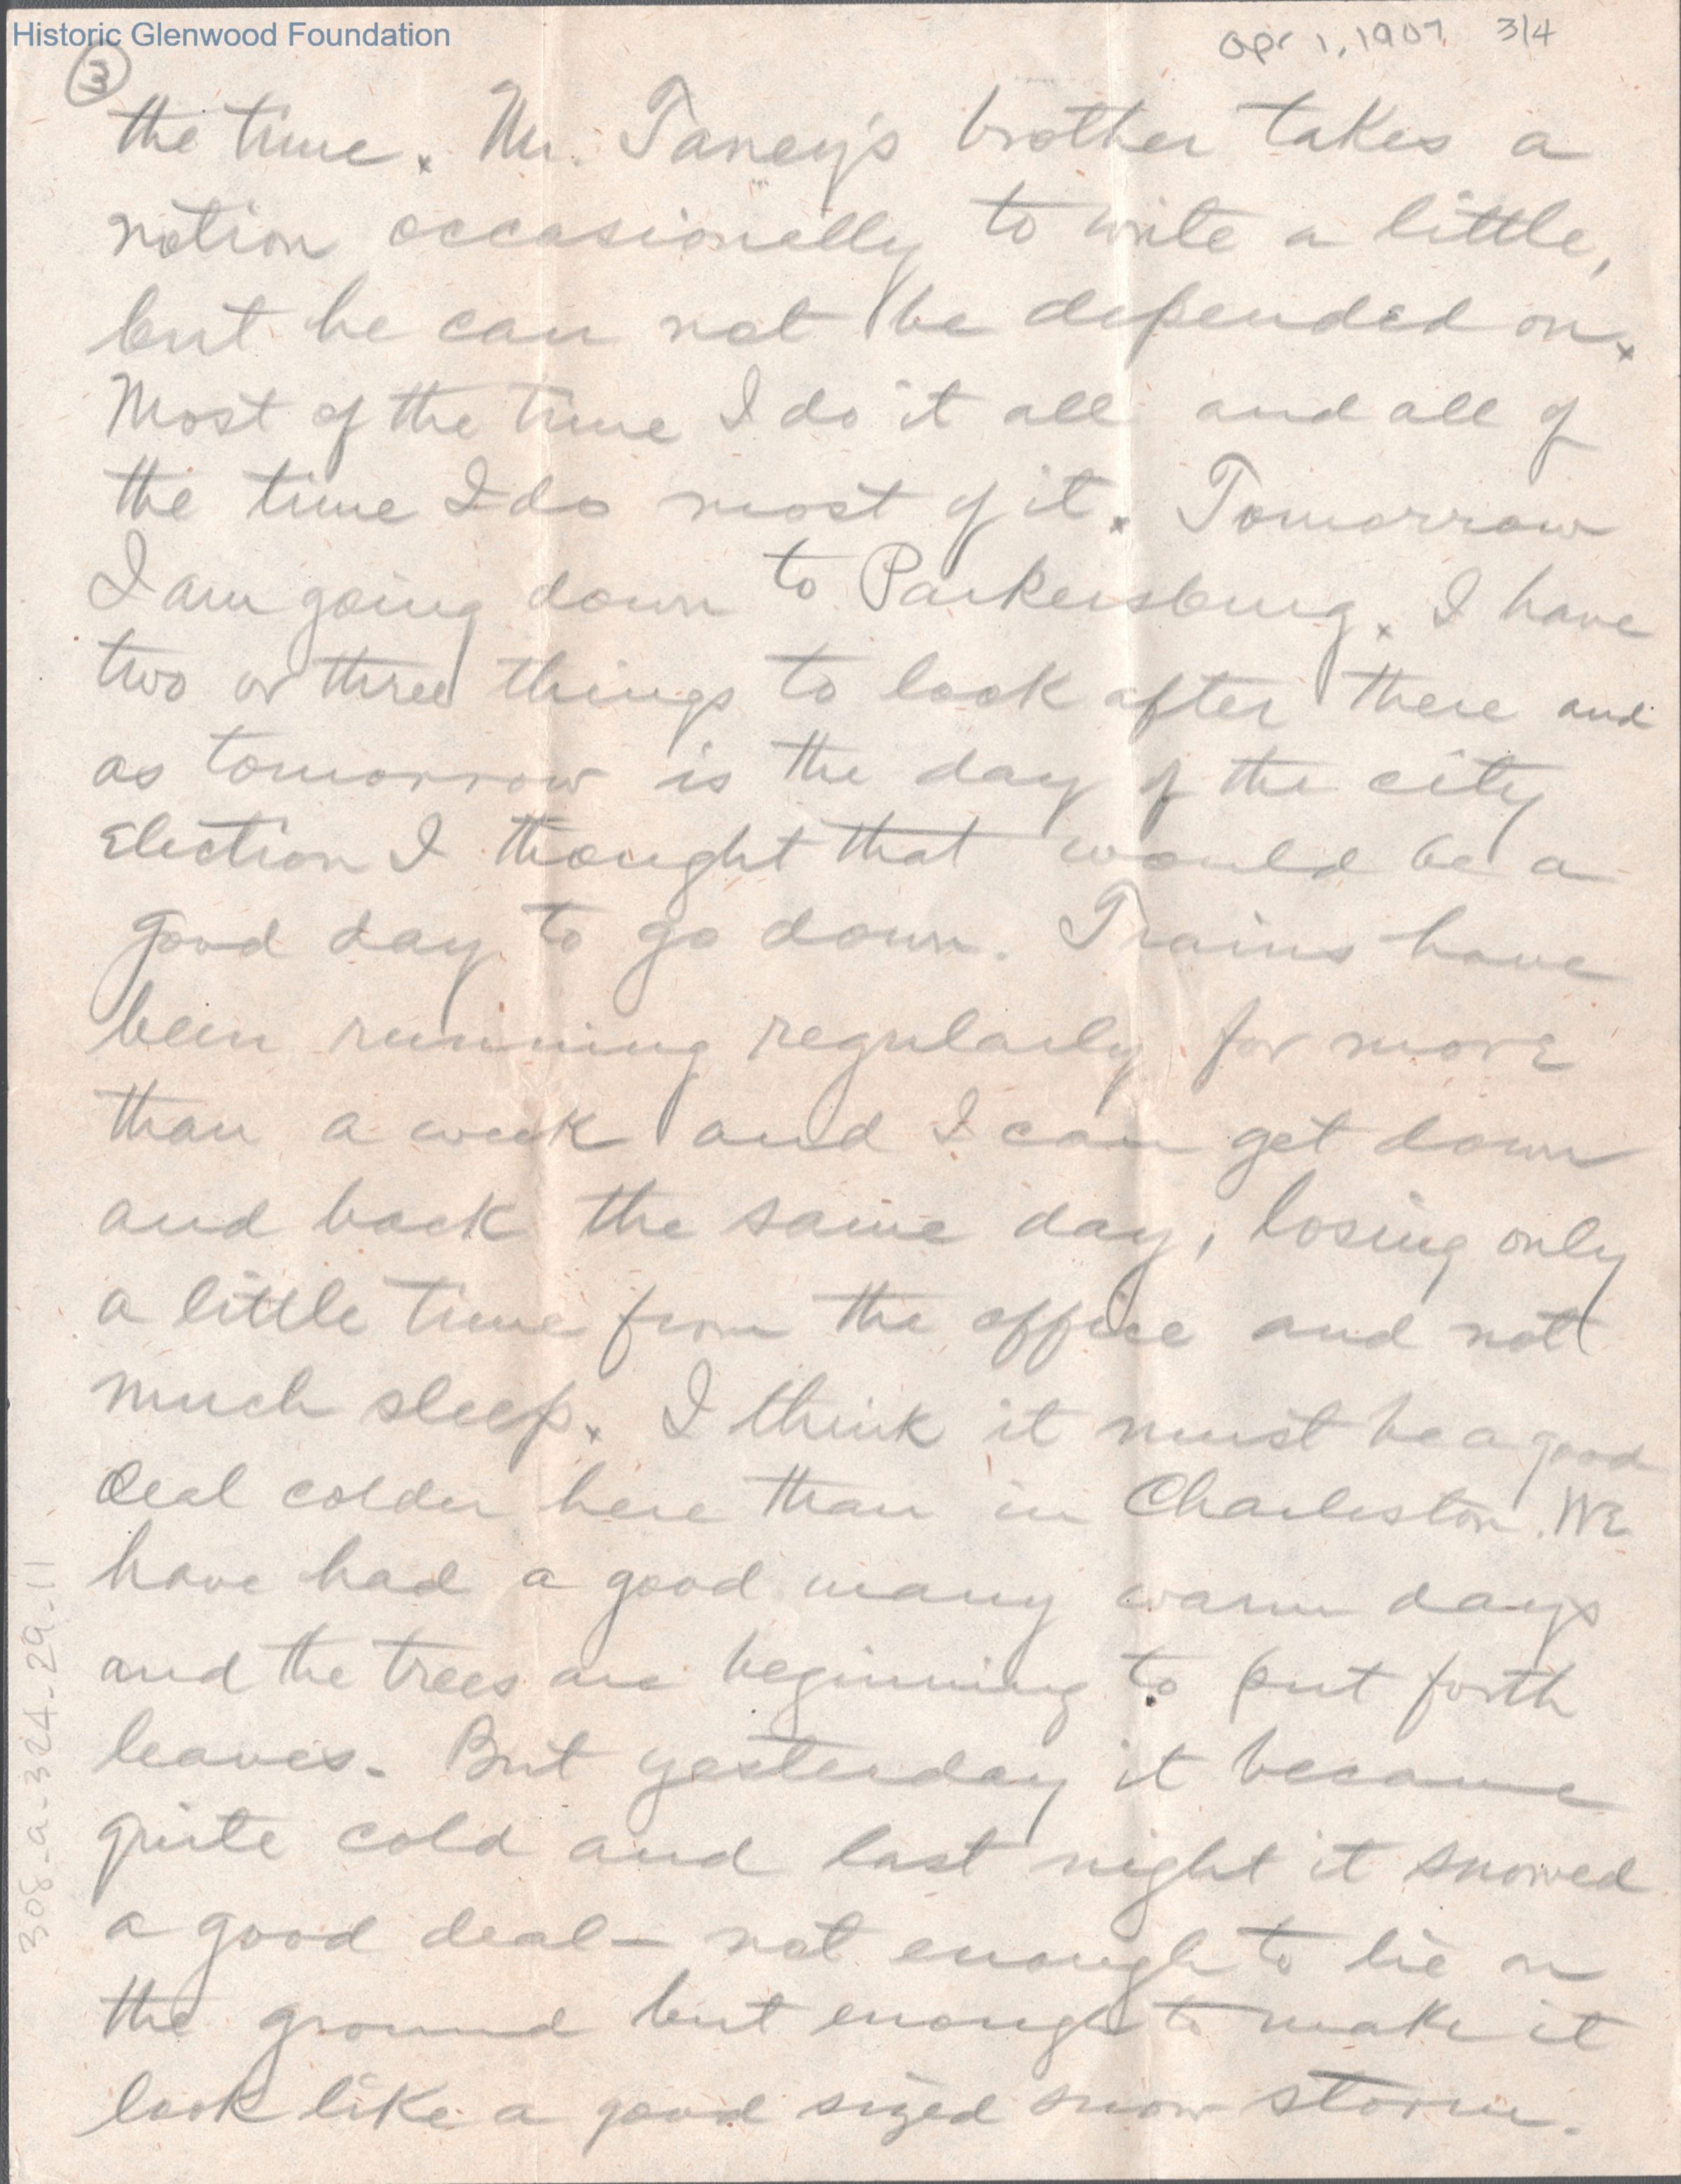 Historic Glenwood Foundation
Apr 1, 1907. 3/4
3
the time x Mr. Taney's brother takes a
notion occasionally to write a little,
but he can not be depended on x
Most of the time I do it all and all of
the time I do most of it x Tomorrow
I am going down to Parkersburg x I have
two or three things to look after there and
as tomorrow is the day of the city
Election I thought that would be a
good day to go down. Trains have
been running regularly for more
than a week and I can get down
and back the same day, losing only
a little time from the office and not
much sleep x I think it must be a good
deal colder here than in Charleston. We
have had a good many warm days
and the trees are beginning to put forth
leaves. But yesterday it became
quite cold and last night it snowed
a good deal - not enough to lie on
the ground but enough to make it
look like a good sized snow storm.
308-a-324-29-11